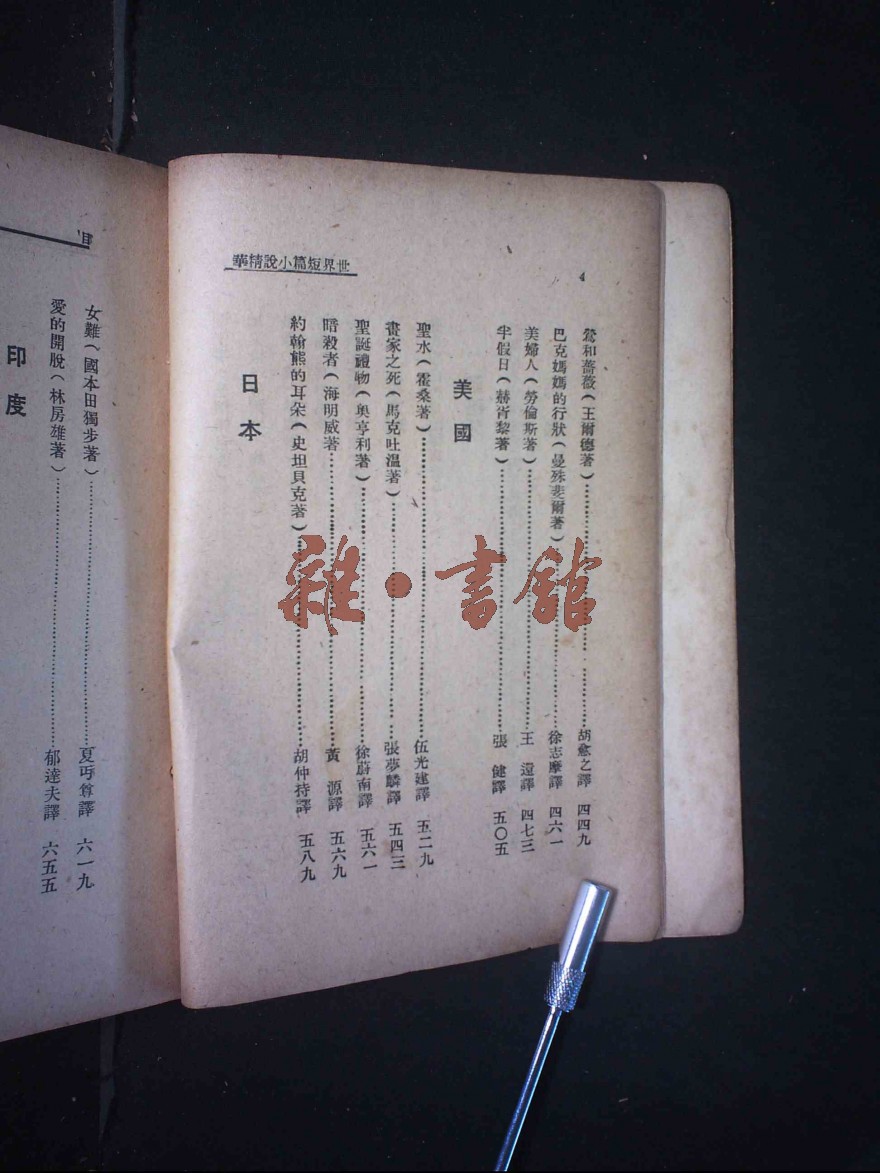 世界短篇小說精華
4
鶯和薔薇(王爾德著)……胡愈之譯 四四九
巴克媽媽的行狀(曼殊斐爾著)……徐志摩譯 四六一
美婦人(勞倫斯著)……王還譯 四七三
半假日(赫胥黎著)……張健譯 五〇五
美國
聖水(霍桑著)……伍光建譯 五二九
畫家之死(馬克吐溫著)……張夢麟譯 五四三
聖誕禮物(奧亨利著)……徐蔚南譯 五六一
暗殺者(海明威著)……黃源譯 五六九
約翰熊的耳朵(史坦貝克著)……胡仲持譯 五八九
日本
目
女難(國本田獨步著)……夏丏尊譯 六一九
愛的開脫(林房雄著)……郁達夫譯 六五五
印度
雜·書館